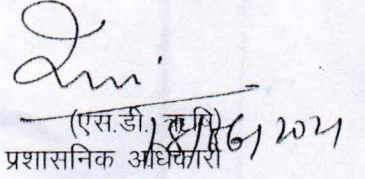 (एस.डी. ऋषि)
18/06/2021
प्रशासनिक अधिकारी